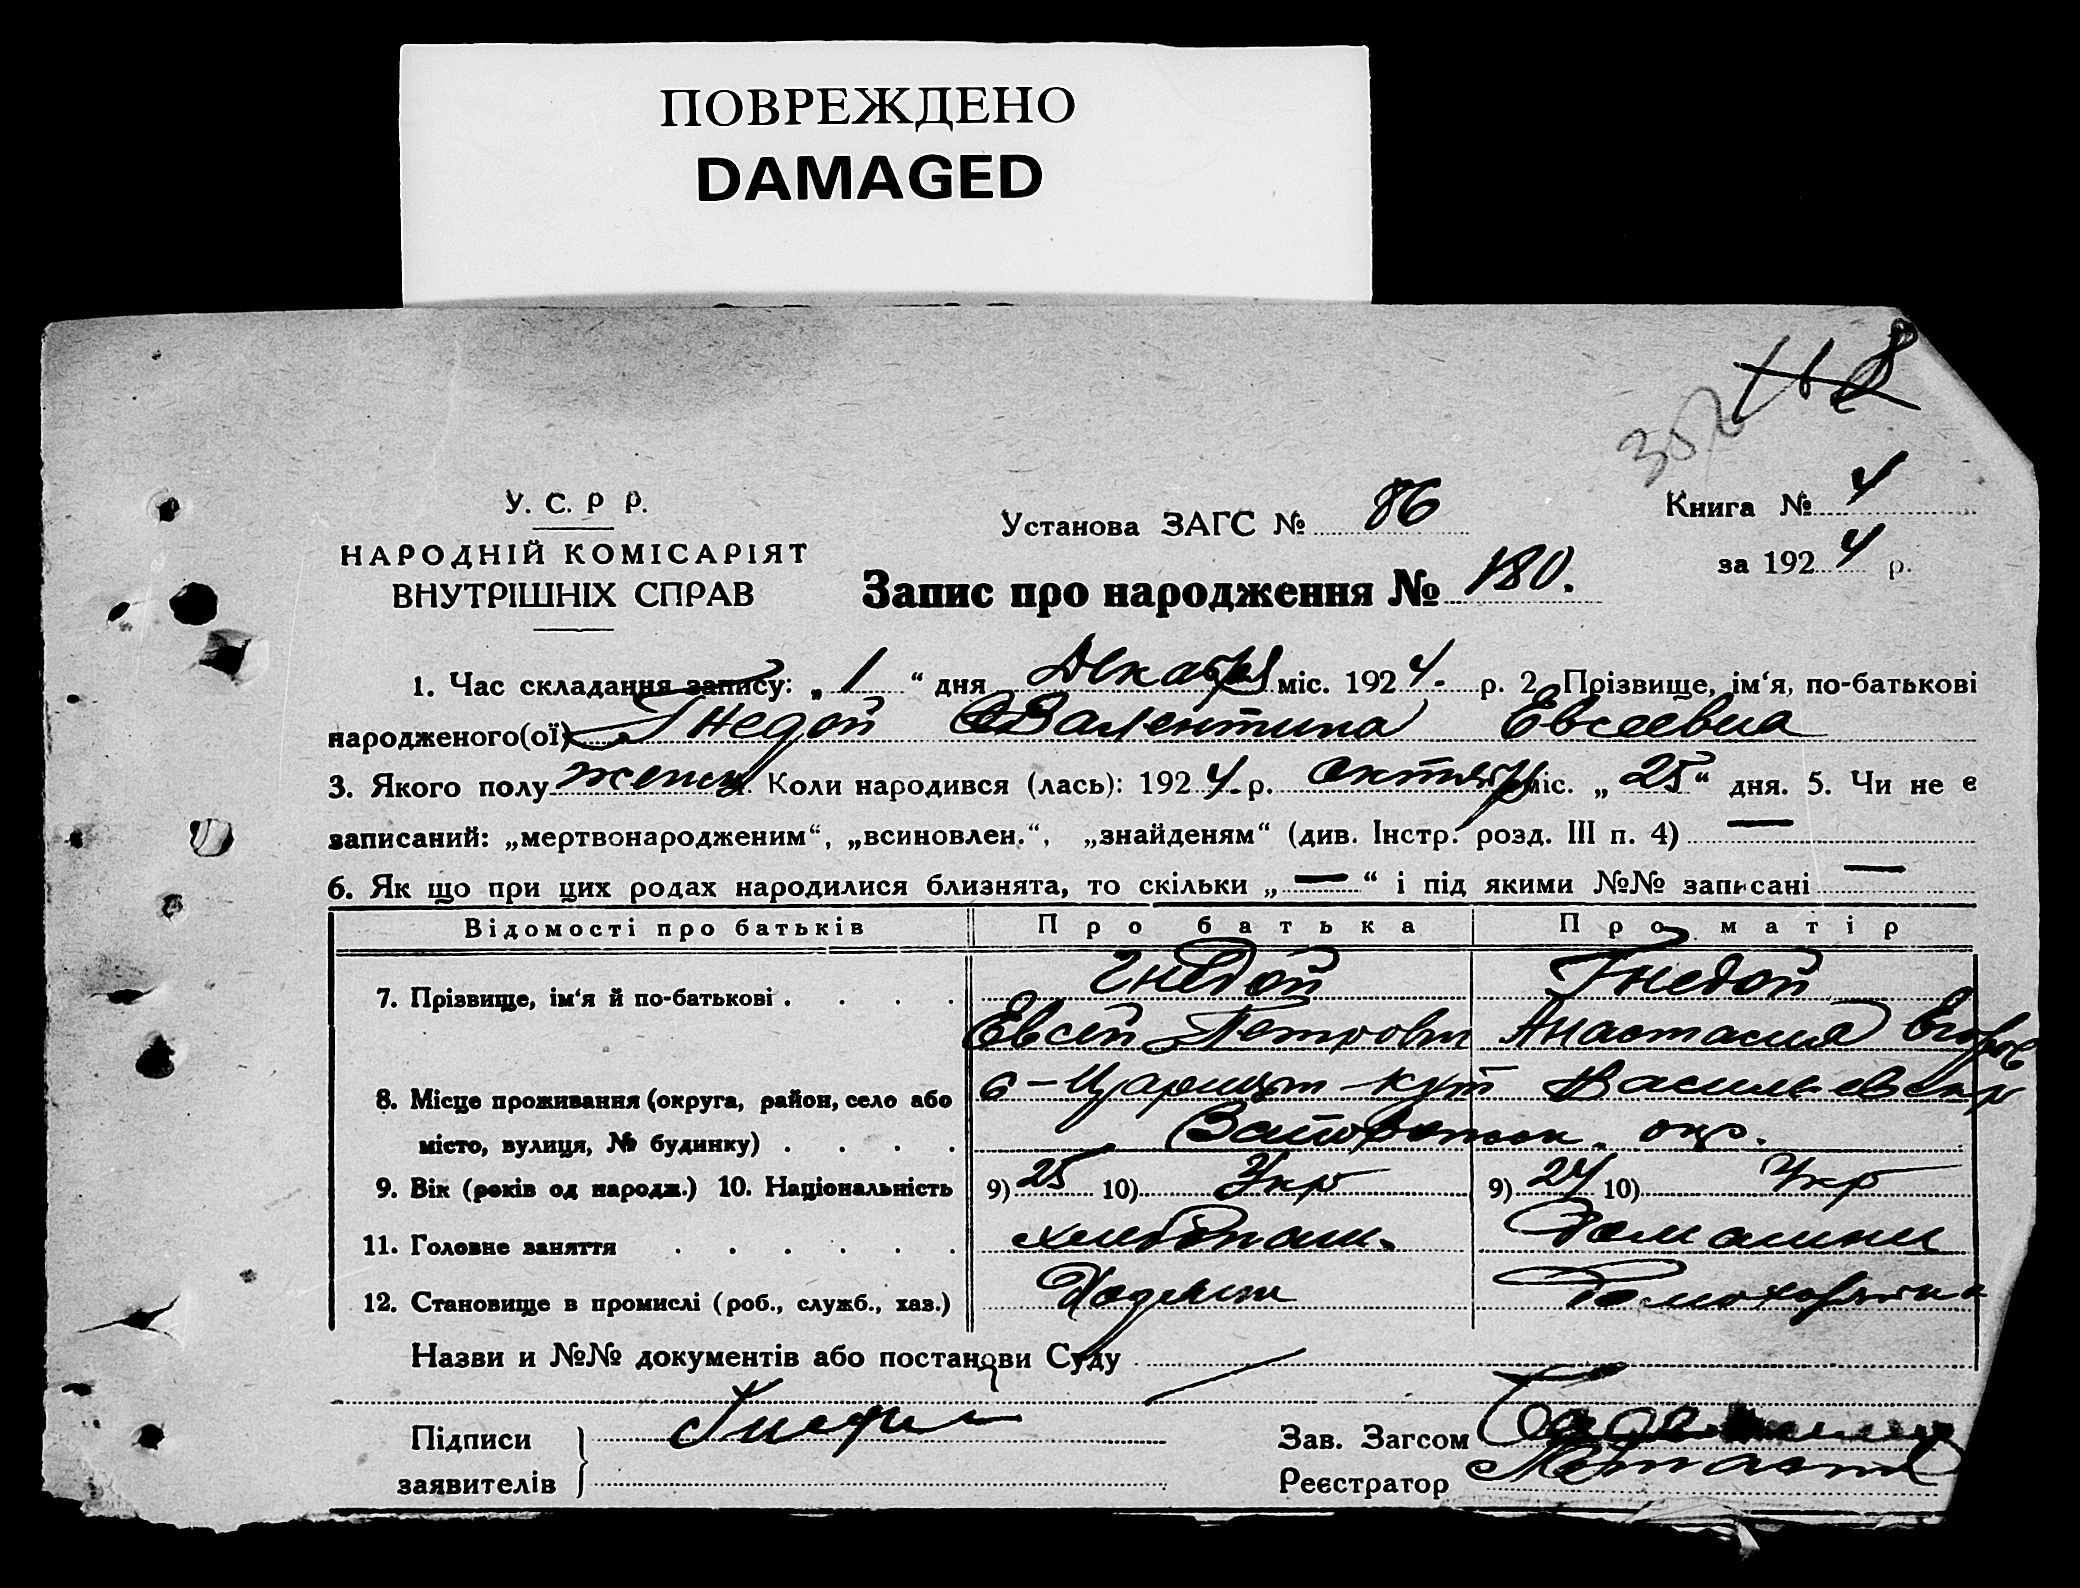 ПОВРЕЖДЕНО
DAMAGED
У. С. Р Р.
НАРОДНІЙ КОМІСАРІЯТ
ВНУТРІШНІХ СПРАВ
Установа ЗАГС № 86
Книга № 4
за 1924 р.
Запис про народження № 180.
1. Час складання запису: „ 1 “ дня Декабря міс. 1924. р. 2 Прізвище, ім‘я, по-батькові
народженого(ої) Гнедой Валентина Евсеевна
3. Якого полу женск. Коли народився (лась): 1924. р. октяб міс. „ 25 “ дня. 5. Чи не є
записаний: „мертвонародженим“, „всиновлен.“, „знайденям“ (див. Інстр. розд. III п. 4) —
6. Як що при цих родах народилися близнята, то скільки „ — “ і під якими №№ записані —
Відомості про батьків Про батька Про матір
7. Прізвище, ім‘я й по-батькові . . . . Гнедой Гнедой
Евсей Петрович Анастасия Егоров
8. Місце проживання (округа, район, село або с-Царицын-Кут Васильевск р
місто, вулиця, № будинку) . . . . окр.
9. Вік (років од народж.) 10. Національність 9) 25 10) Укр 9) 24 10) Укр
11. Головне заняття . . . . . . хлебопаш. Домашни
12. Становище в промислі (роб., служб., хаз.) Хозяин Домохозяйка
Назви и №№ документів або постанови Суду
Підписи
заявителів
Зав. Загсом
Реєстратор